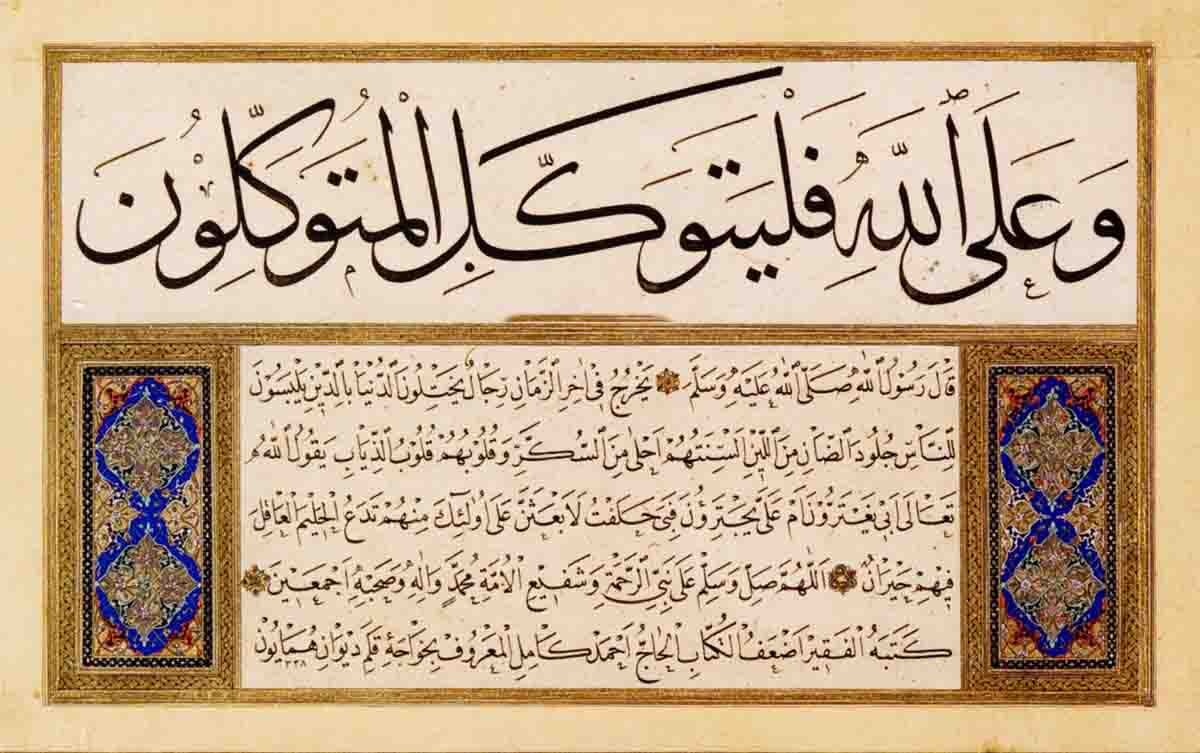 وَعَلَى اللّٰهِ فَلْيَتَوَكَّلِ الْمُتَوَكِّلُونَ
قَالَ رَسُولُ اللّٰهِ صَلَّى اللّٰهُ عَلَيْهِ وَسَلَّمَ يَخْرُجُ فِي اٰخِرِ الزَّمَانِ رِجَالٌ يَخْتِلُونَ الدُّنْيَا بِالدِّينِ يَلْبَسُونَ
لِلنَّاسِ جُلُودَ الضَّاْنِ مِنَ اللِّينِ اَلْسِنَتُهُمْ اَحْلٰى مِنَ السُّكَّرِ وَقُلُوبُهُمْ قُلُوبُ الذِّيَابِ يَقُولُ اللّٰهُ
تَعَالٰى اَبِي يَغْتَرُّونَ اَمْ عَلَيَّ يَجْتَرِؤُنَ فَبِي حَلَفْتُ لَاَبْعَثَنَّ عَلٰى اُولٰئِكَ مِنْهُمْ تَدَعُ الْحَلِيمَ الْعَاقِلَ
فِيهِمْ حَيْرَانَ اَللّٰهُمَّ صَلِّ وَسَلِّمْ عَلٰى نَبِيِّ الرَّحْمَةِ وَشَفِيعِ الْاُمَّةِ مُحَمَّدٍ وَاٰلِهِ وَصَحْبِهِ اَجْمَعِينَ
كَتَبَهُ الْفَقِيرُ اَضْعَفُ الْكُتَّابِ الْحَاجُّ اَحْمَدْ كَامِلْ الْمَعْرُوفُ بِخَوَاجَهِٔ قَلَمِ دِيوَانِ هُمَايُونْ